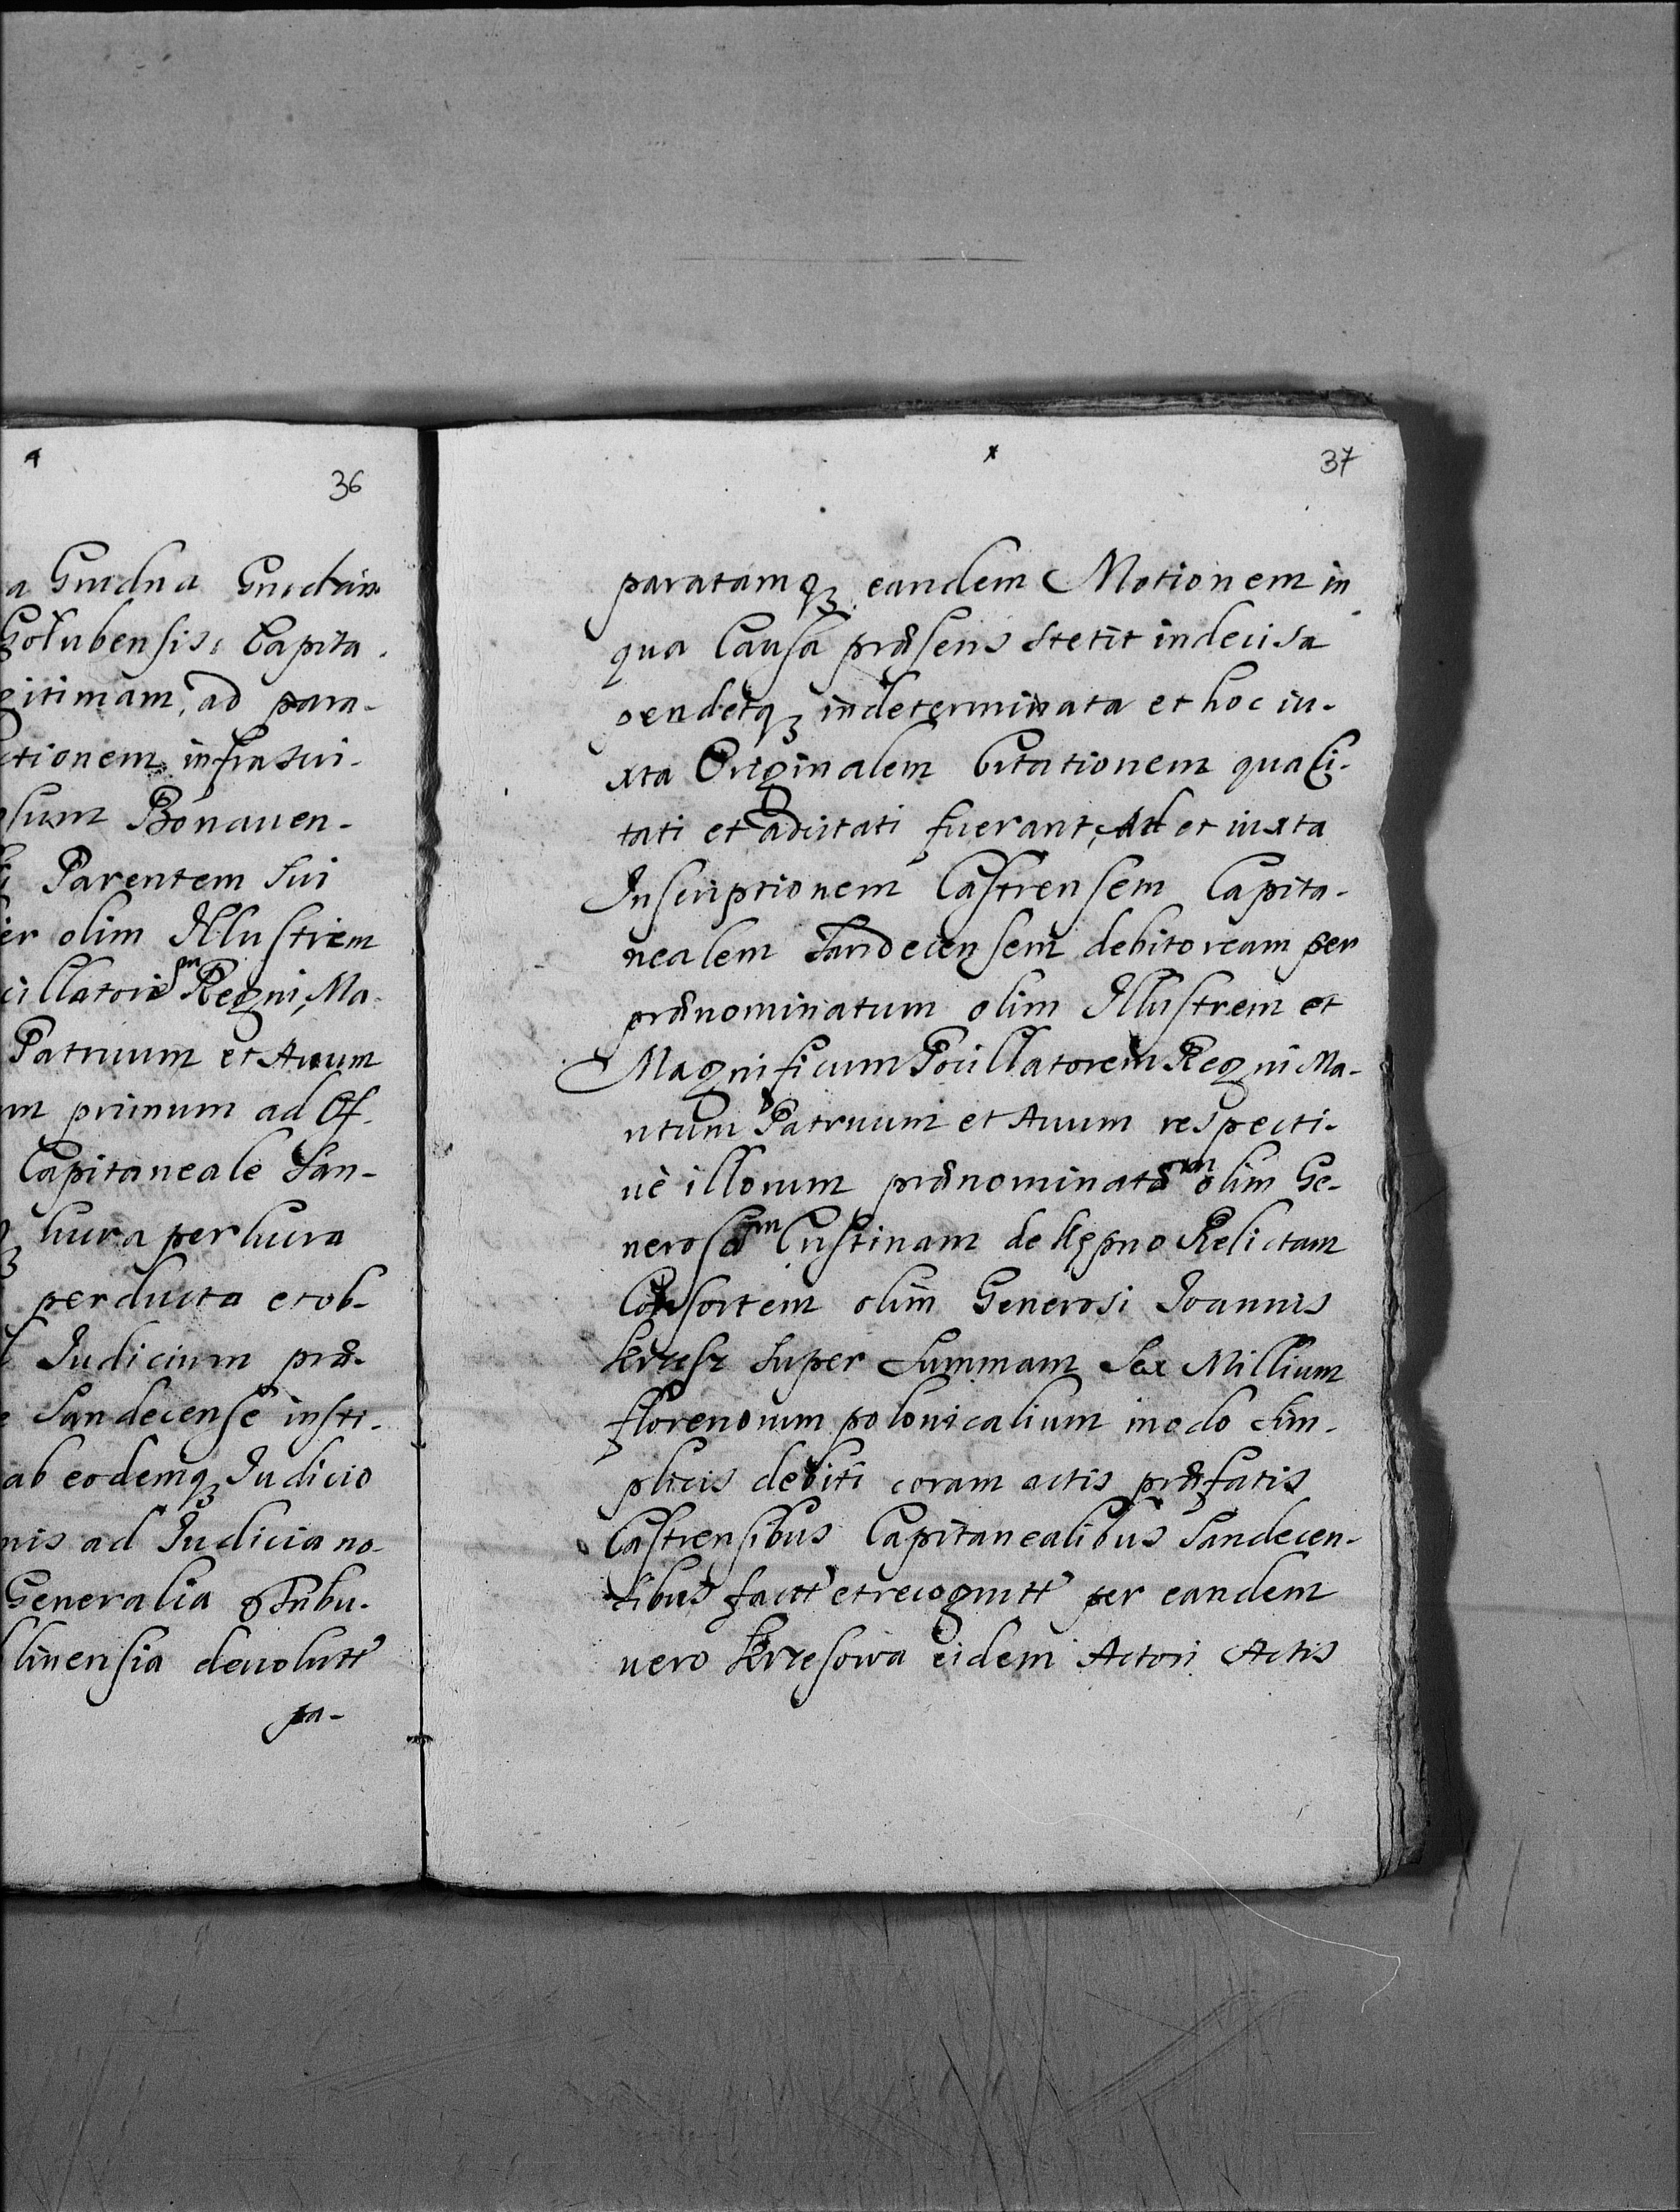 36
a Gnidna Gnictrin
Gołubensis, Capita.
gitimam, ad para-
ctionem infrascri-
lsum Bonauen-
Parentem sui
er olim Illustrem
cillatorem Regni, Ma-
Patruum et Auum
m primum ad Of-
Capitaneale San-
iura per iura
perducta et ob-
Iudicium præ-
Sandecense insti-
ab eodemq Iudicio
nis ad Iudicia no-
Generalia Tribu-
linensia deuolutt
pa-
37
paratamq eandem Motionem in
qua Causa præsens stetit indecisa
pendetq indeterminata et hoc iu-
xta Originalem Citationem qua Ci-
tati et adcitati fuerant, Ad et iuxta
Inscriptionem Castrensem Capita-
nealem Sandecensem debitoream per
prænominatum olim Illustrem et
Magnificum Pocillatorem Regni Ma-
ritum Patruum et Auum respecti-
uè illorum prænominatam olim Ge-
nerosam Cristinam de Kępno Relictam
Consortem olim Generosi Ioannis
Krzesz super Summam Sex Millium
florenorum polonicalium modo sim-
plicis debiti coram actis præfatis
Castrensibus Capitanealibus Sandecen-
sibus factt et recognitt per eandem
uero Krzesowa eidem Actori Actis